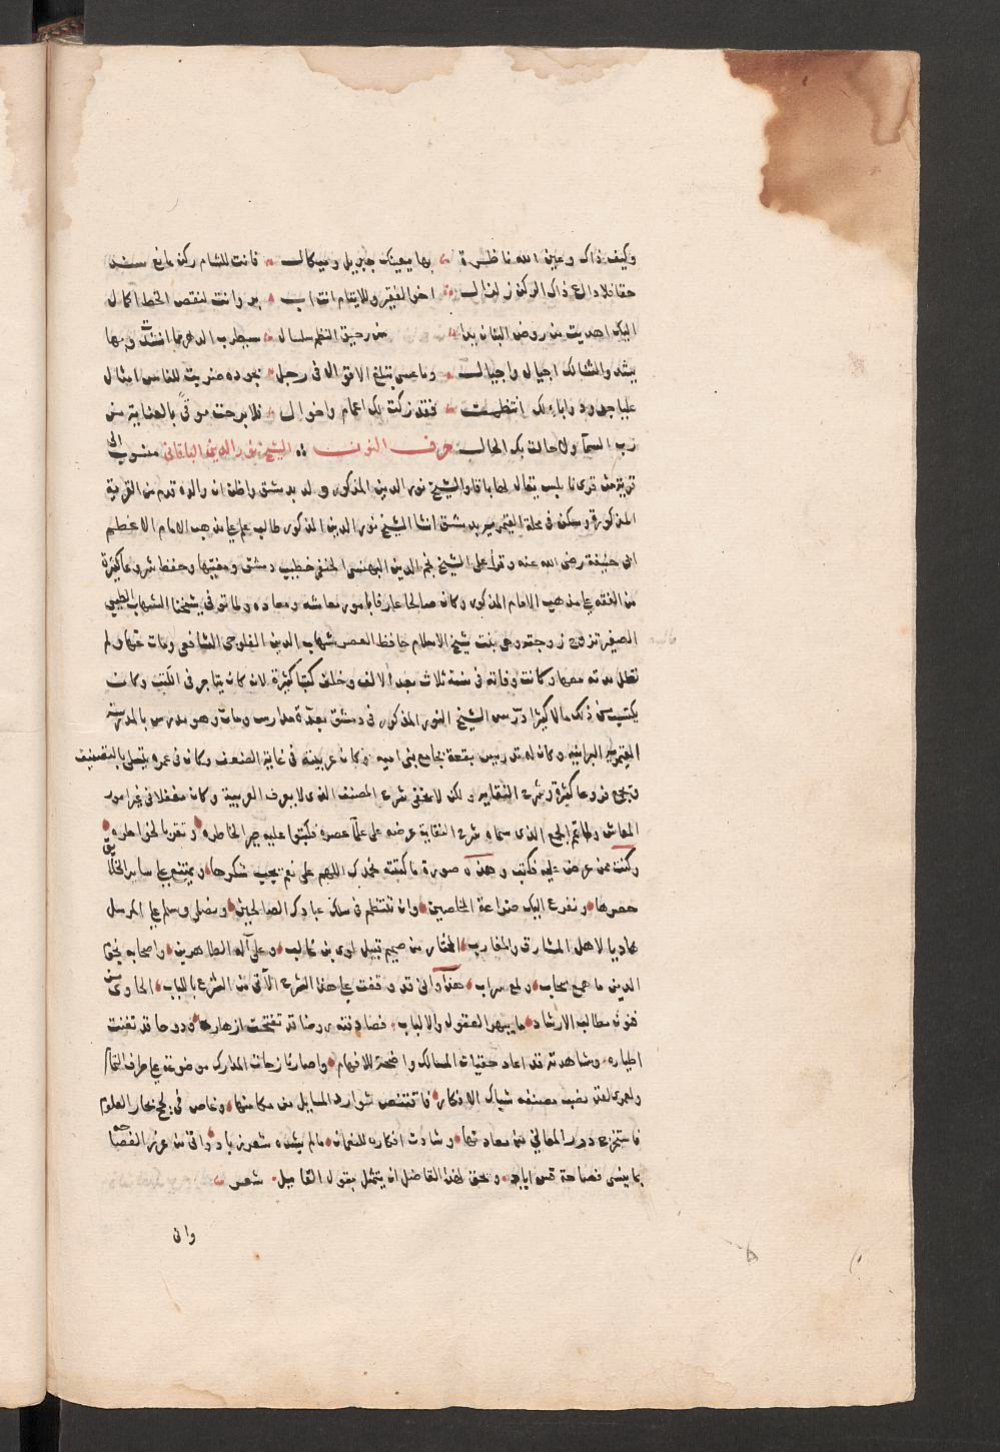 وكيف ذاك وعين الله ناظرة بها يعينك جبريل وميكال فانت للشام ركن مانع سند
حقا فلا زال ذاك الركن اخو الفقير وللايتام انت اب بر وانت لنقص الخط اكمال
اليك اهديت من روض البيان يدا من رحيق النظم سلسال سيطرب الدهر مما انشدت وبها
ينشد وامثالك اجيال واجيال وما عسى تبلغ الاقوال في رجل بجوده ضربت للناس امثال
عليا جدود واباء لك انتظمت فقد زكت لك اعمام واخوال فلا برحت موقى بالعناية من
رب السما ولا حالت بك الحال حرف النون الشيخ نور الدين الباقاني منسوب الى
قرية من قرى نابلس يقال لها باقا والشيخ نور الدين المذكور ولد بدمشق واظن ان والده قدم من القرية
المذكورة وسكن في محلة القيمرية بدمشق انشا الشيخ نور الدين المذكور طالب علم على مذهب الامام الاعظم
ابي حنيفة رضي الله عنه وقرا على الشيخ نجم الدين البهنسي الحنفي خطيب دمشق ومفتيها وحفظ فروعا كثيرة
من الفقه على مذهب الامام المذكور وكان صالحا عارفا بامور معاشه ومعاده ولما توفي شيخنا الشهاب الطيبي
الصغير تزوج زوجته وهي بنت شيخ الاسلام حافظ العصر شهاب الدين الفلوجي الشافعي ومات عنها ولم
تطل مدته معها وكانت وفاته في سنة ثلاث بعد الالف وخلف كتبا كثيرة لانه كان يتاجر في الكتب وكان
يكتسب من ذلك مالا كثيرا درس الشيخ النور المذكور في دمشق بعدة مدارس ومات وهو مدرس بالمدرسة
القيمرية البرانية وكان له تدريس بقعة بجامع بني امية وكان عربيته في غاية الضعف وكان في عمره يتسلى بالتصنيف
وجمع فروعا كثيرة وشرح النقاية ولكن لا يخفى شرح المصنف الذي لا يعرف العربية وكان مغفلا في غير امور
المعاش ولما تم الجمع الذي سماه شرح النقاية عرضه على علماء عصره فكتبوا عليه جبرا لخاطره وتقربا لخواطره
وكنت ممن عرض عليه فكتبت وهذه صورة ما كتبته نحمدك اللهم على نعم يجب شكرها ويمتنع على ساير الخلائق
حصرها ونفزع اليك ضراعة الخاضعين وان ننتظم في سلك عبادك الصالحين ونصلي ونسلم على المرسل
هاديا لاهل المشارق والمغارب المختار من صميم قبيل لوي بن غالب وعلى آله الطاهرين واصحابه نجوم
الدين ما همع سحاب ولمع سراب هذا واني قد وقفت على هذا الشرح الآتي من الشرح باللباب الحاوي من
فنون مطالب الارشاد ما يبهر العقول والالباب فصادفته روضا قد تفتحت ازهاره ودوحا قد تغنت
اطياره وشاهدته قد اعاد خفيات المسالك واضحة للافهام واصار نازحات المدارك موضوعة على طرف الثمام
ولعمري لقد نصب مصنفه شباك الافكار فاقتنص شوارد المسايل من مكامنها وغاص في لجج بحار العلوم
فاستخرج درر المعاني من معادنها وشادت افكاره للنعمان ما لم يشده شعر زياد واتى من غرر الفصاحة
بما ينسي فصاحة قس اياد وحق لهذا الفاضل ان يتمثل بقول القايل شعر
وان